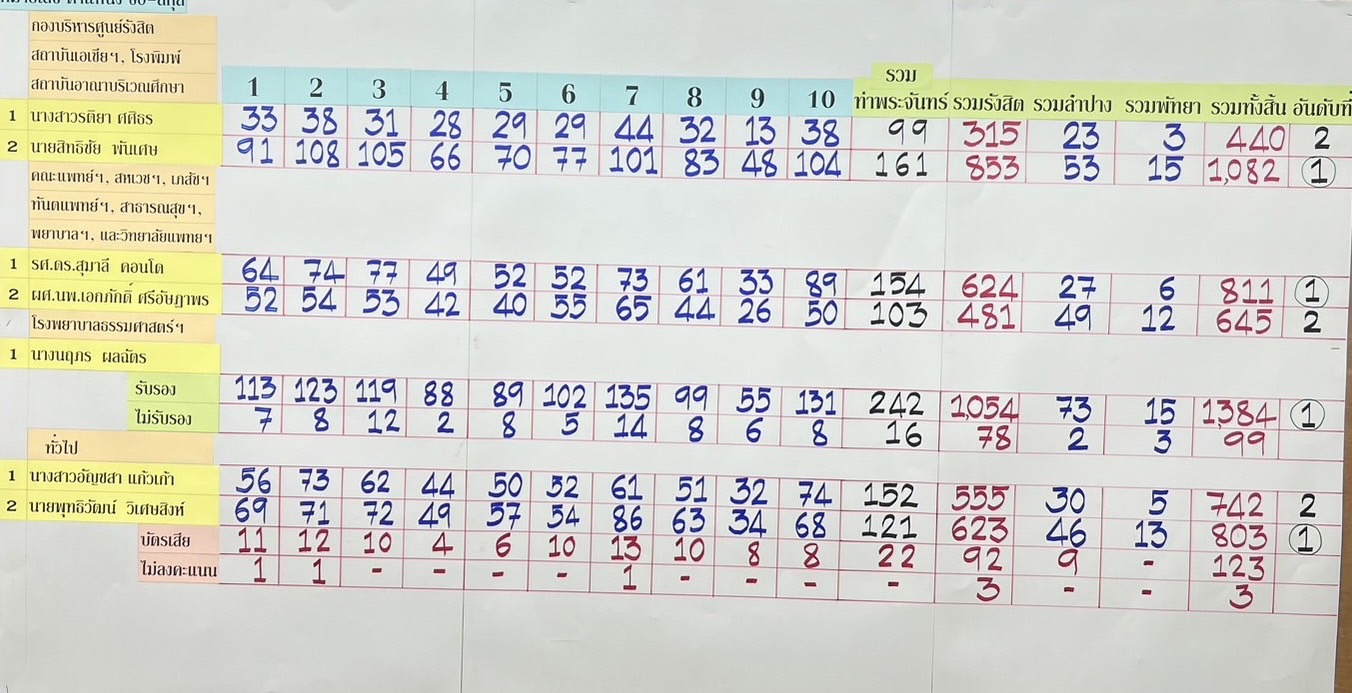 กองบริหารศูนย์รังสิต
สถาบันเอเชียฯ, โรงพิมพ์
รวม
สถาบันอาณาบริเวณศึกษา 1 2 3 4 5 6 7 8 9 10 ท่าพระจันทร์ รวมรังสิต รวมลำปาง รวมพัทยา รวมทั้งสิ้น อันดับที่
1 นางสาวรติยา ศศิธร 33 38 31 28 29 29 44 32 13 38 99 315 23 3 440 2
2 นายสิทธิชัย พันเศษ 91 108 105 66 70 77 101 83 48 104 161 853 53 15 1,082 1
คณะแพทย์ฯ, สหเวชฯ, เภสัชฯ
ทันตแพทย์ฯ, สาธารณสุขฯ,
พยาบาลฯ, และวิทยาลัยแพทยฯ
1 รศ.ดร.สุมาลี คอนโด 64 74 77 49 52 52 73 61 33 89 154 624 27 6 811 1
2 ผศ.นพ.เอกภักดิ์ ศรีอัษฎาพร 52 54 53 42 40 55 65 44 26 50 103 481 49 12 645 2
โรงพยาบาลธรรมศาสตร์ฯ
1 นางนฤภร ผลฉัตร
รับรอง 113 123 119 88 89 102 135 99 55 131 242 1,054 73 15 1384 1
ไม่รับรอง 7 8 12 2 8 5 14 8 6 8 16 78 2 3 99
ทั่วไป
1 นางสาวอัญชสา แก้วเก้า 56 73 62 44 50 52 61 51 32 74 152 555 30 5 742 2
2 นายพุทธิวัฒน์ วิเศษสิงห์ 69 71 72 49 57 54 86 63 34 68 121 623 46 13 803 1
บัตรเสีย 11 12 10 4 6 10 13 10 8 8 22 92 9 - 123
ไม่ลงคะแนน 1 1 - - - - 1 - - - - 3 - - 3